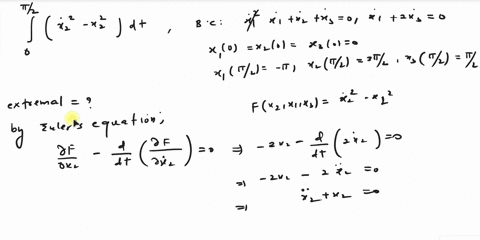 ∫₀^{π/2} (ẋ₂² - x₂²) dt , B.C: ẋ₁ + ẋ₂ + ẋ₃ = 0, ẋ₁ + 2ẋ₃ = 0
x₁(0) = x₂(0) = x₂(0) = 0
x₁(π/2) = -π, x₂(π/2) = 3π/2, x₃(π/2) = π/2
extremal = ?
F(x₂, x₁, x₃) = ẋ₂² - x₂²
by Euler's equation;
∂F/∂x₂ - d/dt (∂F/∂ẋ₂) = 0 ⇒ -2x₂ - d/dt (2ẋ₂) = 0
⇒ -2x₂ - 2ẍ₂ = 0
⇒ ẍ₂ + x₂ = 0